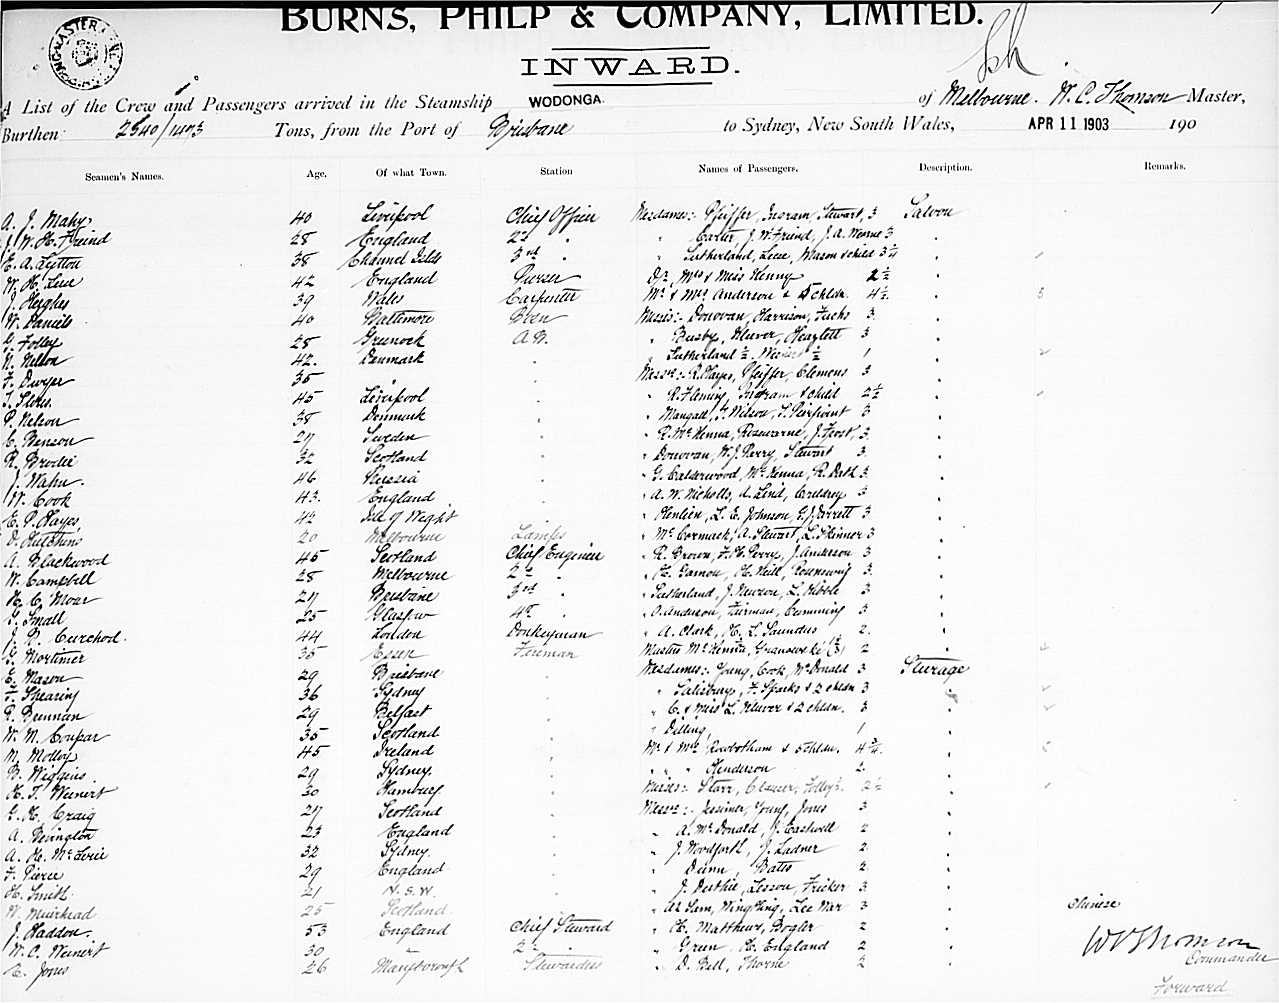 BURNS, PHILP & COMPANY, LIMITED.
INWARD.
A List of the Crew and Passengers arrived in the Steamship WODONGA. of Melbourne. W. C. Thomson Master,
Burthen 2340/1473 Tons, from the Port of Brisbane to Sydney, New South Wales, APR 11 1903 190
Seamen's Names. Age. Of what Town. Station Names of Passengers. Description. Remarks.
A. J. Mahy 40 Liverpool Chief Officer Mesdames:- Pfeiffer, Ingram, Stewart, 3 Saloon
J. W. H. Friend 28 England 2nd " Carter, J. W. Friend, J. A. Wearne 3
E. A. Lytton 38 Channel Islds 3rd " Sutherland, Leese, Mason & child 3 1/4
W. H. Lee 42 England Purser Dr, Mrs & Miss Kenny 2 1/2
J. Hughes 39 Wales Carpenter Mr & Mrs Anderson & 5 chldn. 4 1/2
W. Daniels 40 Baltimore Bsen Misses:- Donovan, Harrison, Fuchs 3
G. Folley 28 Greenock A.B. " Busby, Kluver, Heazlett 3
N. Nelson 42 Denmark " Sutherland 1/2 1/2 1
F. Dwyer 35 " Messrs:- R. Hayes, Pfeiffer, Clemens 3
45 Liverpool " R. Fleming, Ingram & child 2 1/2
P. Nelson 38 Denmark " Mangall, F. Wilson, T. Pierpoint 3
C. Benson 27 Sweden " R. McKenna, Rosewarne, J. Frost, 3
R. Brodie 32 Scotland " Donovan, W. J. Perry, Stewart 3
J. Wahn. 46 Russia " G. Calderwood, McKenna, R. Dath 3
W. Cook 43. England " A. W. Nicholls, A. Lind, 3
E. P. Hayes, 42 Isle of Wight " Henlien, L. E. Johnson, G. J. Perrett 3
D. Hutchins 20 Melbourne Lamps " McCormack, A. Stewart, L. Skinner 3
A. Blackwood 45 Scotland Chief Engineer " R. Brown, F. H. Perry, J. Anderson 3
W. Campbell 28 Melbourne 2nd " H. Gamon, H. Neill, 3
H. C. Moar 27 Brisbane 3rd " Sutherland, J. Newson, L. Kibble 3
G. Small 25 Glasgow 4th " O. Anderson, Fairman, Cumming 3
J. R. Curchod. 44 London Donkeyman " A. Clark, H. L. Saunders 2
G. Mortimer 35 Essex Fireman Masters McKenna, 2
E. Mason 29 Brisbane Mesdames:- Young, Cook, McDonald 3 Steerage
F. Shearing 36 Sydney " Salisbury, F. Sparks & 2 chldn 3
R. Brennan 29 Belfast " C. & Miss L. Kluver & 2 chldn. 3
W. M. Coupar 35 Scotland " Dilling, 1
M. Molloy 45 Ireland Mr & Mrs Rowbotham & 5 chldn. 4 3/4
B. Wiggins 29 Sydney. " " " Henderson 2
H. T. Weinert 30 Hamburg Misses:- Starr, Clauser, Folley 2 1/2
G. H. Craig 27 Scotland Messrs:- Jessiner, Young, Jones 3
A. Bevington 23 England " A. McDonald, J. Eastwell 2
A. H. McLevie 32 Sydney. " J. Woodforth, J. Ladner 2
F. Pierce 29 England " Dunn, Batts 2
H. Smith 21 N.S.W. " J. Desthie, Lesson, Fricker 3
W. Muirhead 25 Scotland " Ah Sam, Wing Hing, Lee War 3 Chinese
J. Haddon. 53 England Chief Steward " H. Matthews, Bogler 2
W. C. Weinert 30 " 2nd " Green, H. England 2
E. Jones 26 Maryborough Stewardess " D. Bell, Thorne 2
W C Thomson
Commander
Forward